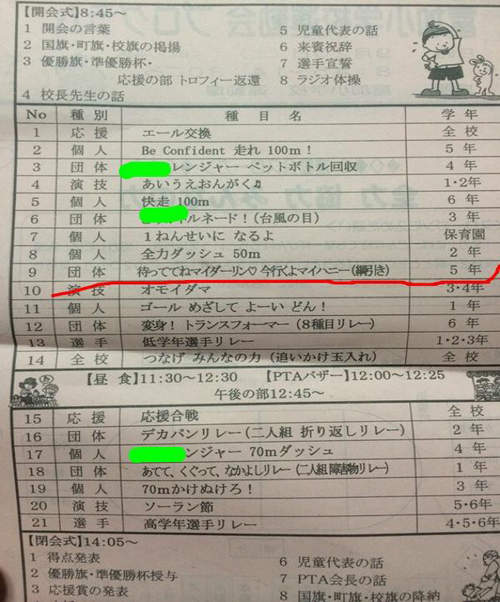 【開会式】8:45～
1 開会の言葉
2 国旗・町旗・校旗の掲揚
3 優勝旗・準優勝杯・
応援の部 トロフィー返還
4 校長先生の話
5 児童代表の話
6 来賓祝辞
7 選手宣誓
8 ラジオ体操
No 種別 種目名 学年
1 応援 エール交換 全校
2 個人 Be Confident 走れ 100m! 5年
3 団体 レンジャー ペットボトル回収 4年
4 演技 あいうえおんがく♫ 1・2年
5 個人 快走 100m 6年
6 団体 ルネード!(台風の目) 3年
7 個人 1ねんせいに なるよ 保育園
8 個人 全力ダッシュ 50m 2年
9 団体 待っててねマイダーリン♡ 今行くよマイハニー(綱引き) 5年
10 演技 オモイダマ 3・4年
11 個人 ゴール めざして よーい どん! 1年
12 団体 変身! トランスフォーマー(8種目リレー) 6年
13 選手 低学年選手リレー 1・2・3年
14 全校 つなげ みんなの力(追いかけ玉入れ) 全校
【昼 食】11:30～12:30 【PTAバザー】12:00～12:25
午後の部12:45～
15 応援 応援合戦 全校
16 団体 デカパンリレー(二人組 折り返しリレー) 2年
17 個人 ンジャー 70mダッシュ 4年
18 団体 あてて、くぐって、なかよしリレー(二人組障害物リレー) 1年
19 個人 70mかけぬけろ! 3年
20 演技 ソーラン節 5・6年
21 選手 高学年選手リレー 4・5・6年
【閉会式】14:05～
1 得点発表
2 優勝旗・準優勝杯授与
3 応援賞の発表
6 児童代表の話
7 PTA会長の話
8 国旗・町旗・校旗の降納